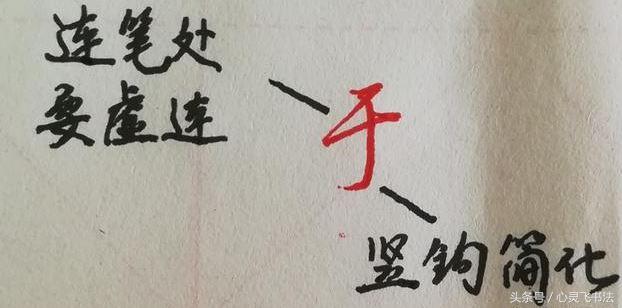 连笔处
要虚连
于
竖钩简化
头条号／心灵飞书法